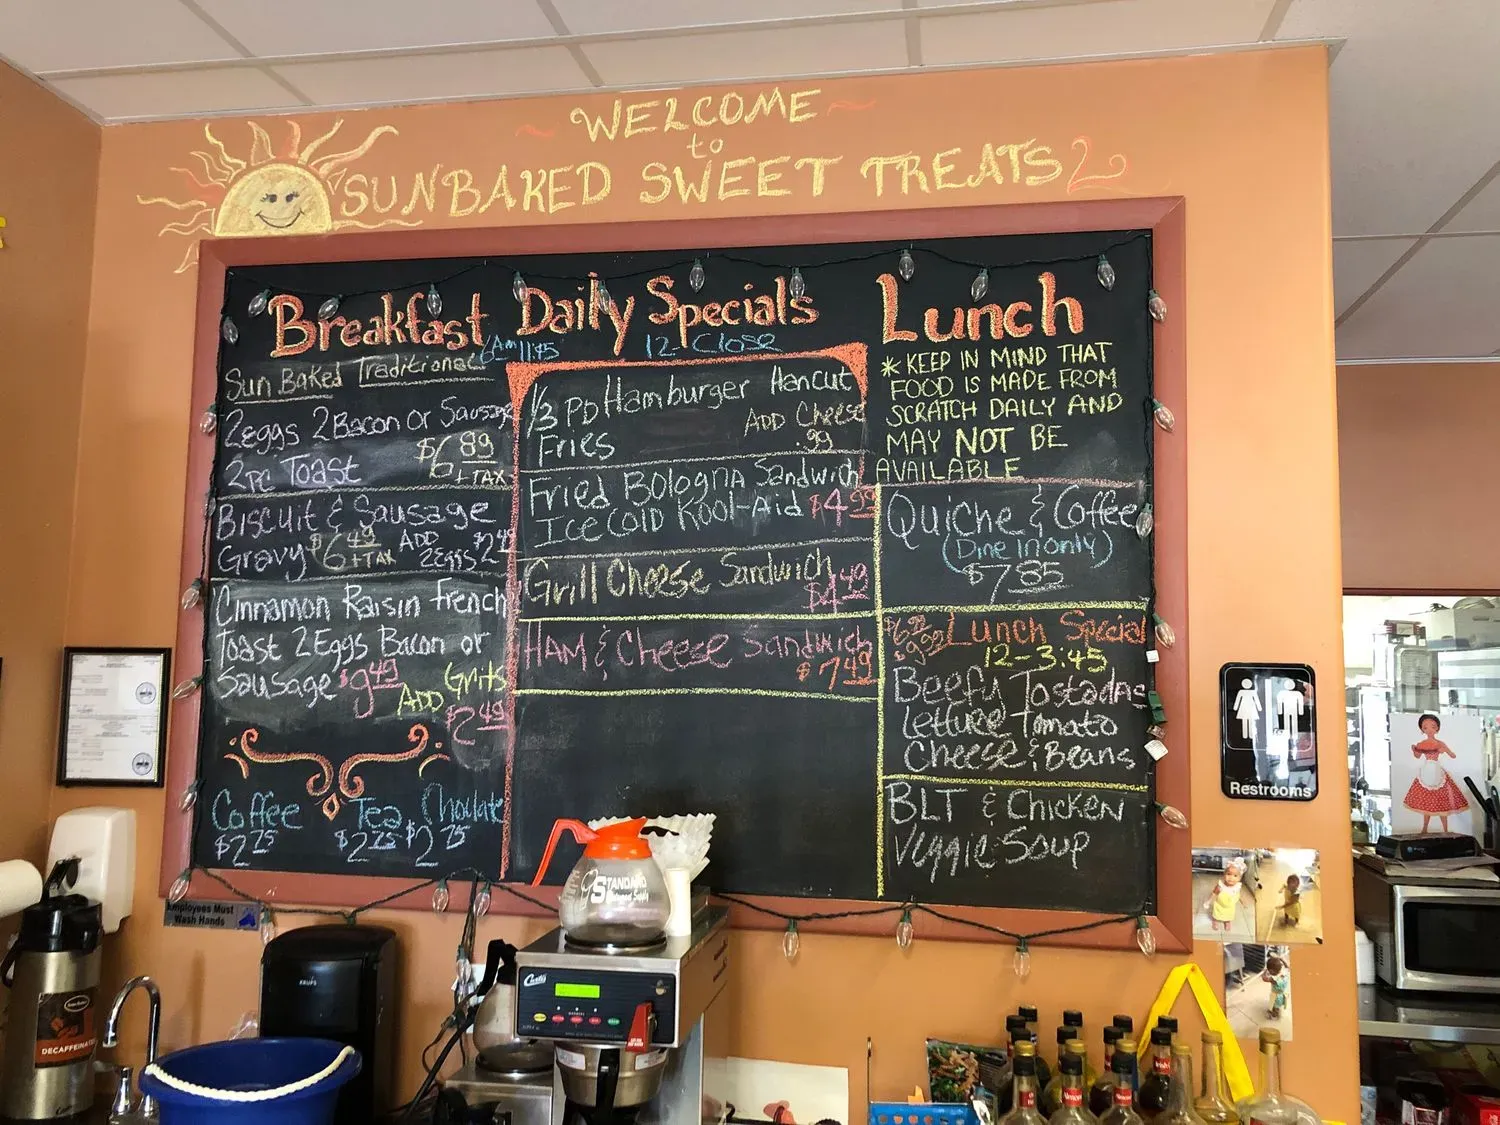 WELCOME
to
SUNBAKED SWEET TREATS 2
Breakfast
6Am 11:45
Sun Baked Traditional
2eggs 2Bacon Or Sausage
2pc Toast $6 89 +TAX
Biscuit & Sausage
Gravy $6 49 +TAX ADD 2Eggs $2 49
Cinnamon Raisin French
Toast 2Eggs Bacon or
Sausage $9 49
ADD Grits
$2 49
Coffee Tea Choclate
$2 75 $2 75 $2 75
Daily Specials
12-Close
1/3 PD Hamburger Hancut
Fries ADD Cheese .99
Fried Bologna Sandwich
Ice Cold Kool-Aid $4 99
Grill Cheese Sandwich
$4 49
HAM & Cheese Sandwich
$7 49
Lunch
*KEEP IN MIND THAT
FOOD IS MADE FROM
SCRATCH DAILY AND
MAY NOT BE
AVAILABLE
Quiche & Coffee
(Dine in only)
$7 85
Lunch Special
12-3:45
Beefy Tostadas
Lettuce Tomato
Cheese & Beans
BLT & Chicken
Veggie Soup
Restrooms
Employees Must
Wash Hands
STANDARD
Curtis
KRUPS
DECAFFEINATED